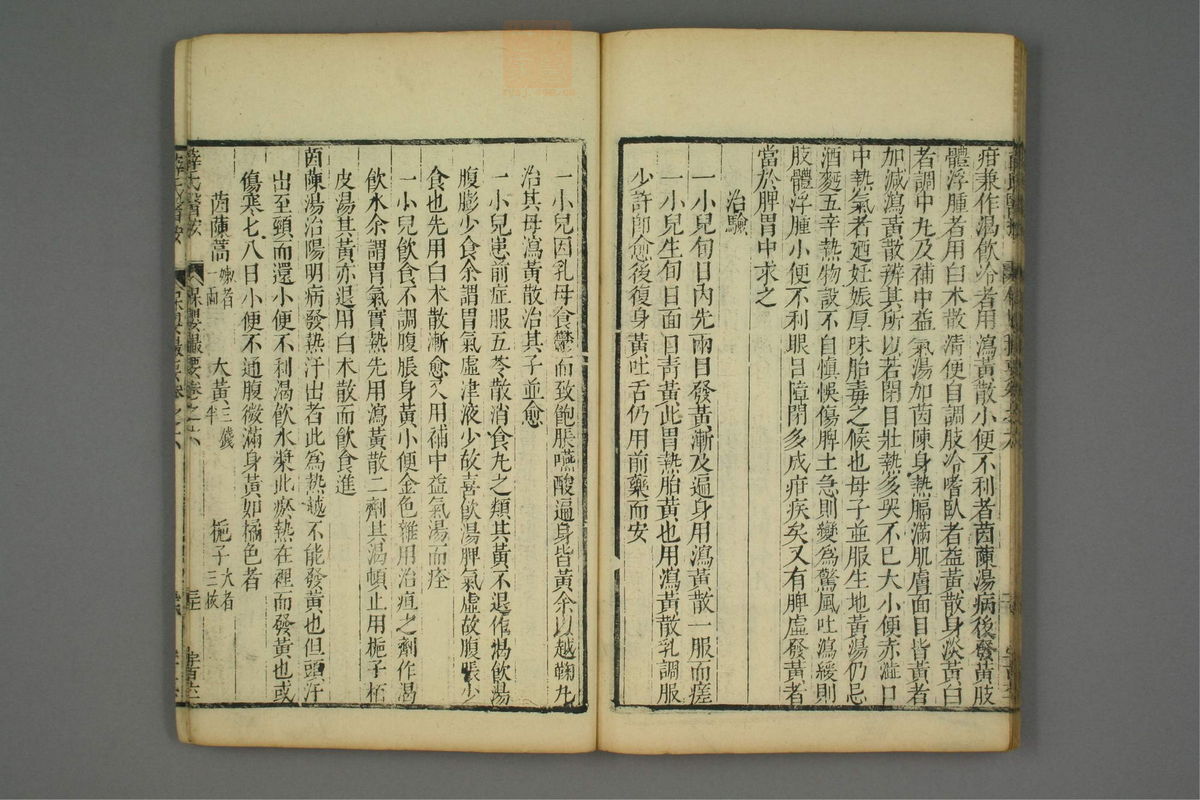 疳兼作渴飲冷者用瀉黃散小便不利者茵蔯湯病後發黃肢
體浮腫者用白朮散清便自調肢冷嗜臥者益黃散身淡黃白
者調中丸及補中益氣湯如茵陳身熱膈滿肌膚面目皆黃者
加減瀉黃散辨其所以若閉目壯熱多哭不巳大小便赤澁口
中熱氣者廼妊娠厚味胎毒之候也母子並服生地黃湯仍忌
酒麪五辛熱物設不自慎悞傷脾土急則變為驚風吐瀉緩則
肢體浮腫小便不利眼目障閉多成疳疾矣又有脾虛發黃者
當於脾胃中求之
治驗
一小兒旬日內先兩目發黃漸及遍身用瀉黃散一服而瘥
一小兒生旬日面目青黃此胃熱胎黃也用瀉黃散乳調服
少許卽愈後復身黃吐舌仍用前藥而安
一小兒因乳母食鬱而致飽脹嚥酸遍身皆黃余以越鞠丸
治其母瀉黃散治其子並愈
一小兒患前症服五苓散消食丸之類其黃不退作渴飲湯
腹膨少食余謂胃氣虛津液少故喜飲湯脾氣虛故腹脹少
食也先用白朮散漸愈又用補中益氣湯而痊
一小兒飲食不調腹脹身黃小便金色雜用治疸之劑作渴
飲水余謂胃氣實熱先用瀉黃散二劑其渴頓止用梔子栢
皮湯其黃亦退用白朮散而飲食進
茵蔯湯治陽明病發熱汗出者此為熱越不能發黃也但頭汗
出至頸而還小便不利渴飲水漿此瘀熱在裡而發黃也或
傷寒七八日小便不通腹微滿身黃如橘色者
茵蔯蒿嫩者一兩 大黃三錢半 梔子大者三枚
薛氏醫按 保嬰撮要卷之六